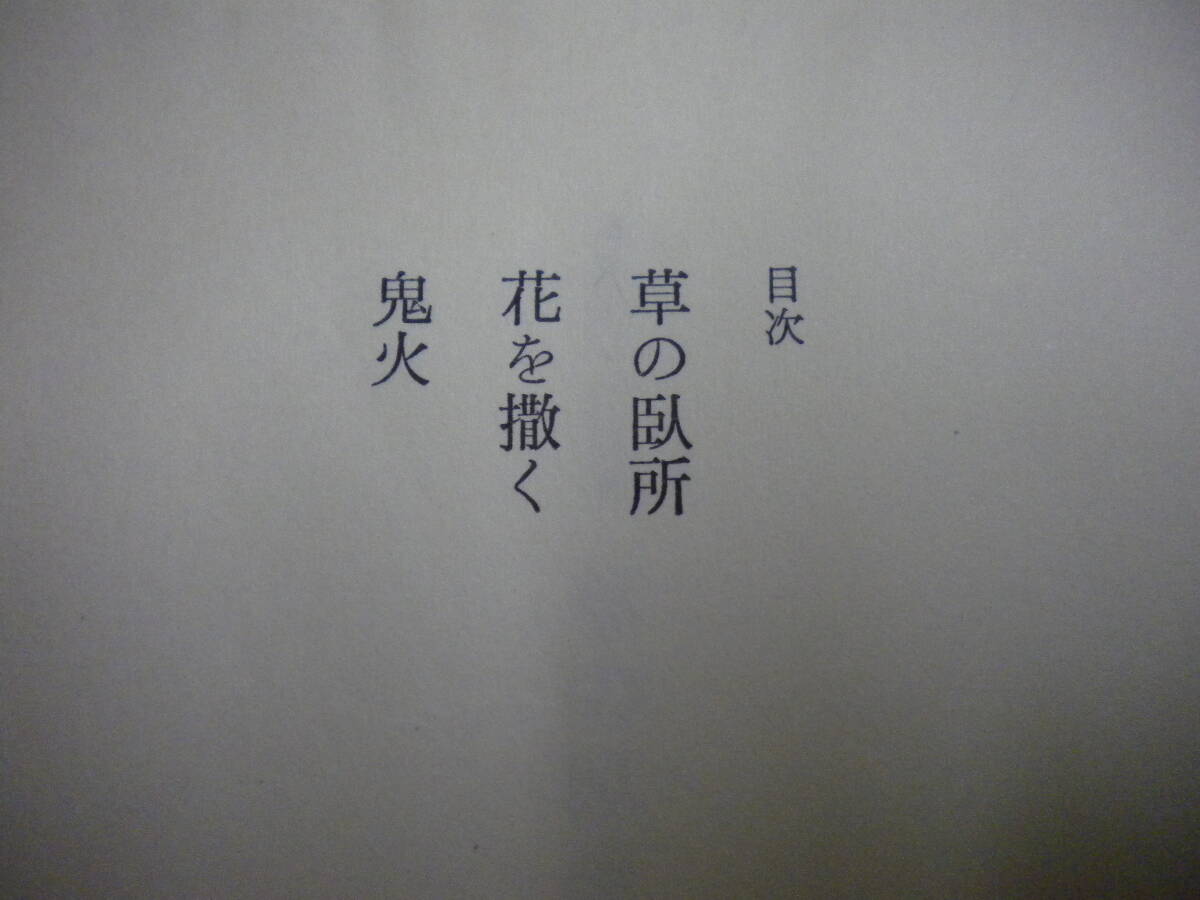 目次
草の臥所
花を撒く
鬼火